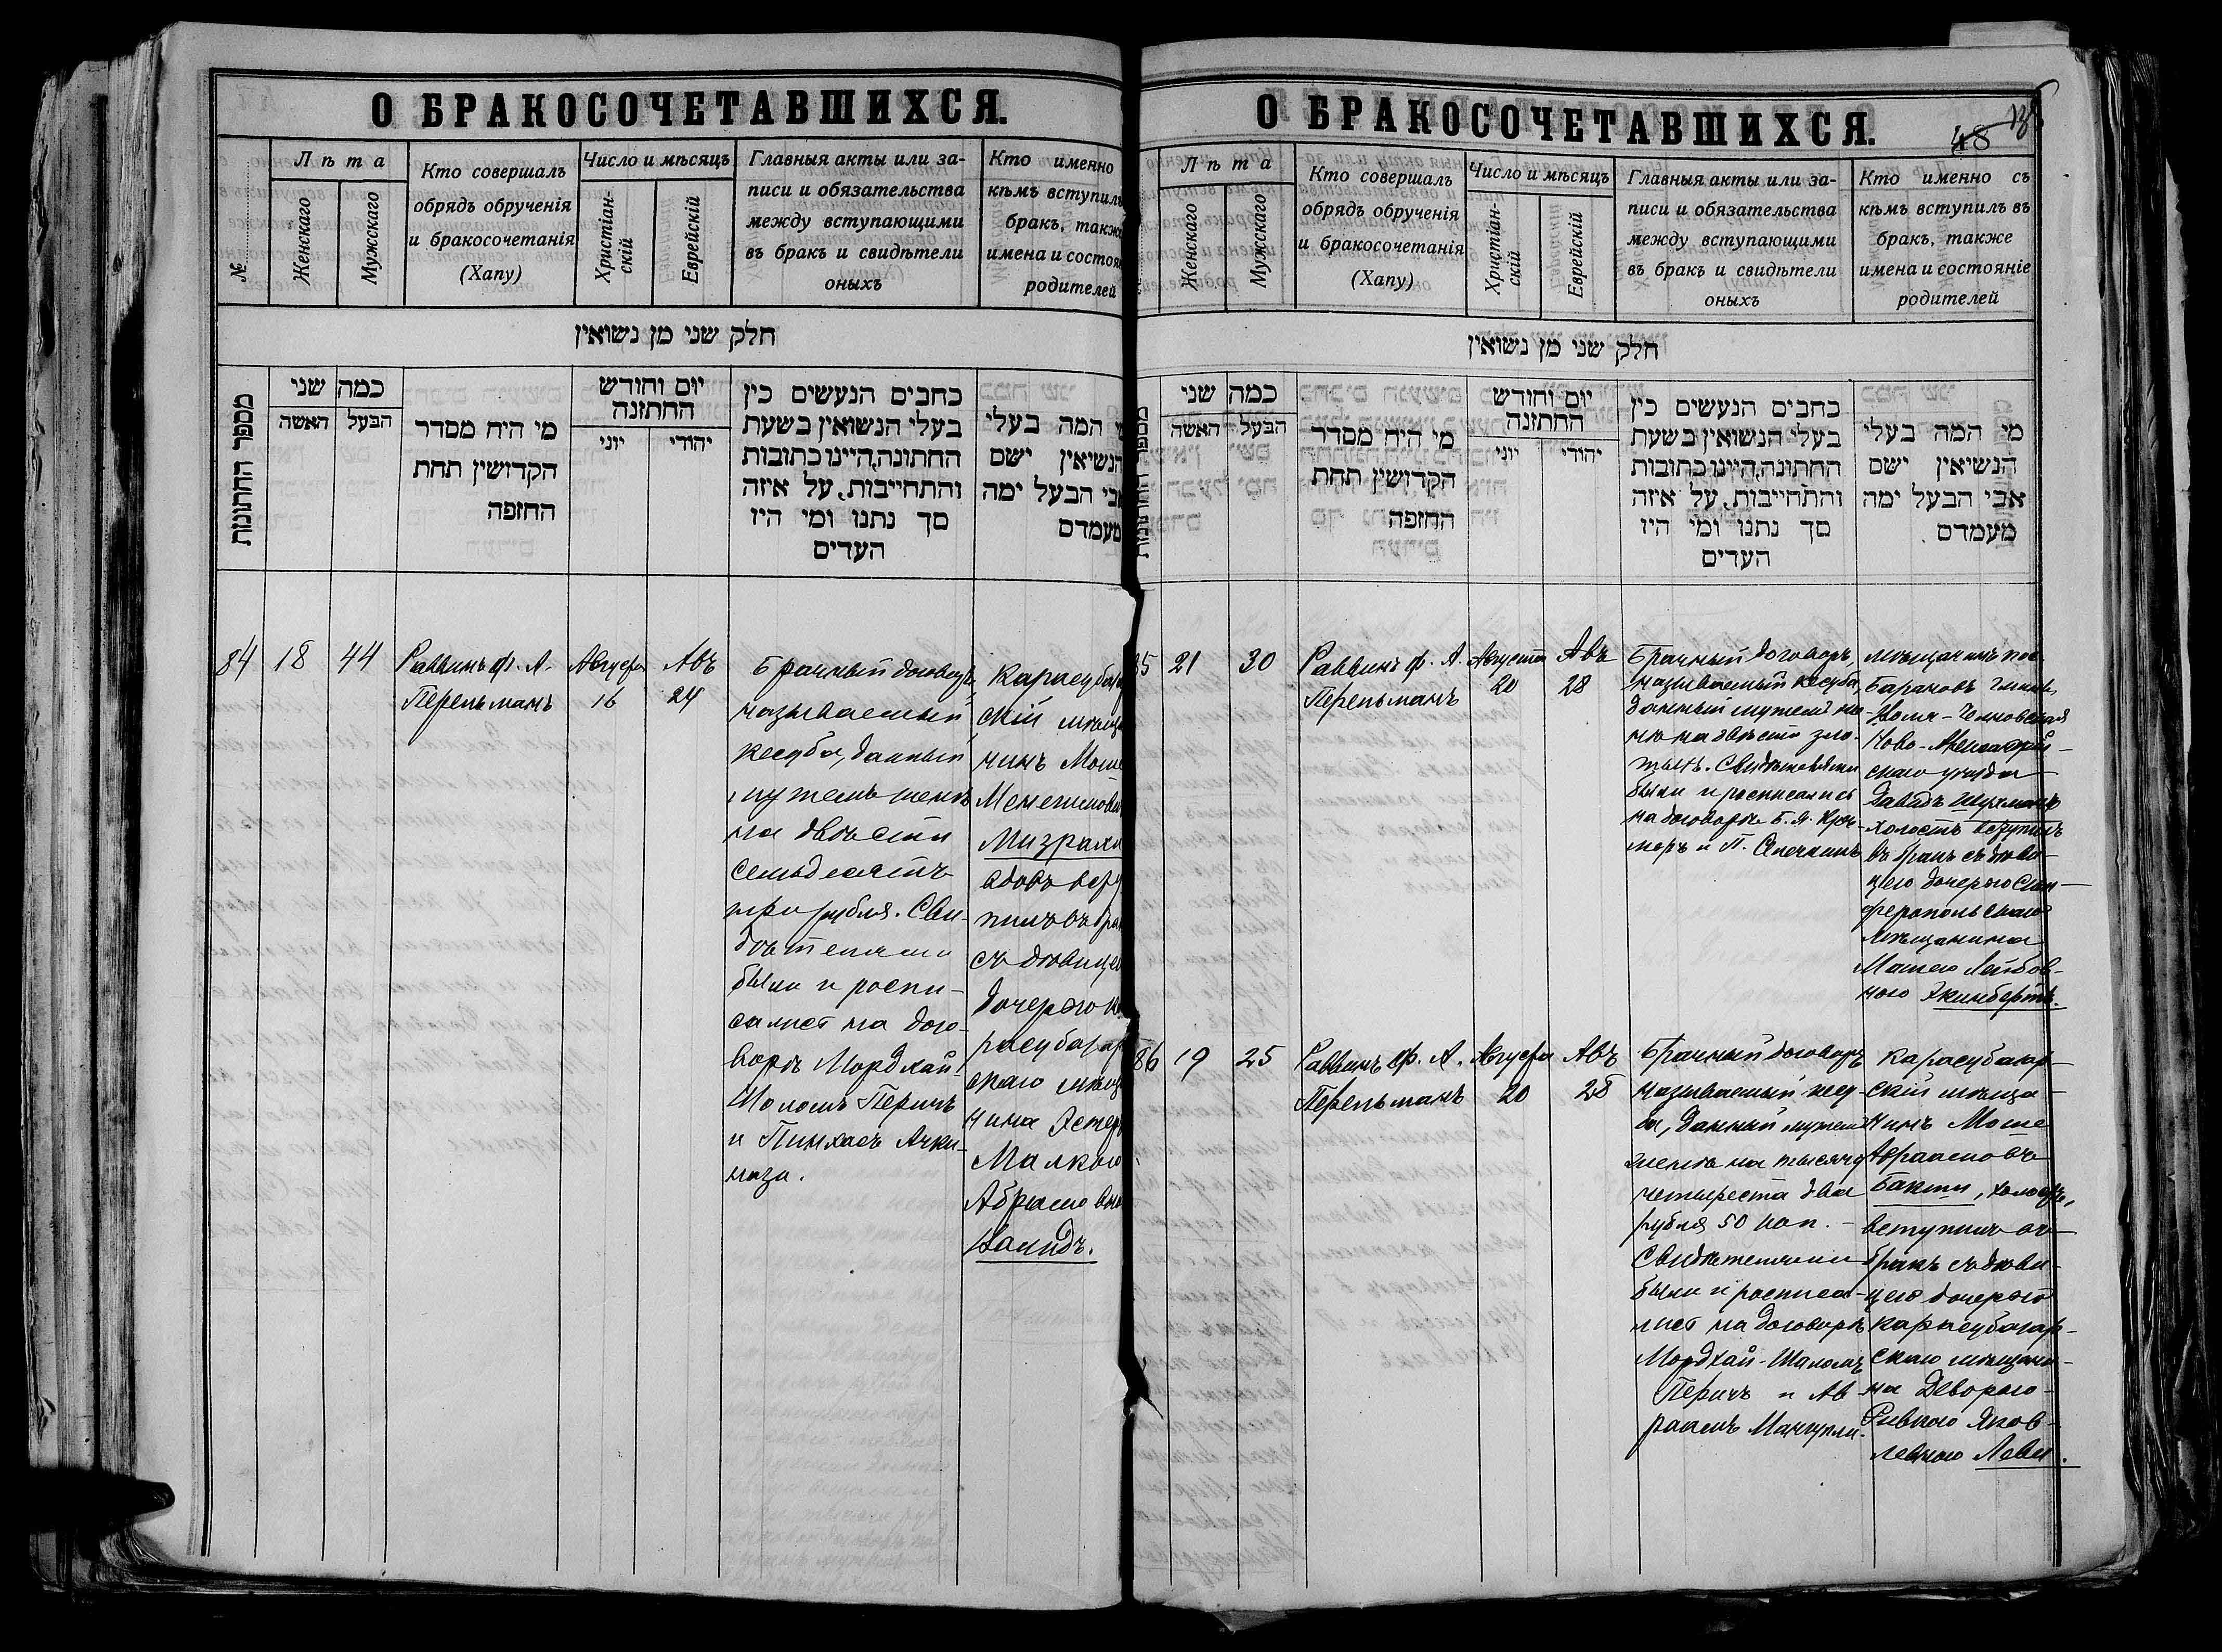 О БРАКОСОЧЕТАВШИХСЯ.
№
Лѣта
Женскаго
Мужскаго
Кто совершалъ
обрядъ обрученія
и бракосочетанія
(Хапу)
Число и мѣсяцъ
Христіан-
скій
Еврейскій
Главныя акты или за-
писи и обязательства
между вступающими
въ бракъ и свидѣтели
оныхъ
Кто именно
кѣмъ вступилъ
бракъ, также
имена и состоя
родителей
חלק שני מן נשואין
מספר החתונות
כמה שני
האשה
הבעל
מי היח מסדר
הקדושין תחת
החופה
יום וחודש
החתונה
יוני
יהודי
כתבים הנעשים בין
בעלי הנשואין בשעת
החתונה, היינו כתובות
והתחייבות, על איזה
סך נתנו ומי היו
העדים
המה בעלי
הנשיאין ישם
אבי הבעל ימה
מעמדם
84
18
44
Раввинъ Ф. А.
Перельманъ
Августа
16
Авъ
24
Брачный договоръ,
называемый
кесуба, данный
мужемъ женѣ
на двѣсти
семьдесятъ
три рубля. Сви-
дѣтелями
были и роспи-
сались на дого-
ворѣ Мордхай-
Шоломъ Перичъ
и Пинхасъ Ачки-
нази.
Карасубаз
скій мѣща
нинъ Моше
Менешовъ
Мизрахи
вдовъ всту
пилъ въ бра
съ дѣвицею
дочерью Ка
расубазар
скаго мѣща
нина Эстеръ
Малкою
Абрамовн
О БРАКОСОЧЕТАВШИХСЯ.
48
Лѣта
Женскаго
Мужскаго
Кто совершалъ
обрядъ обрученія
и бракосочетанія
(Хапу)
Число и мѣсяцъ
Христіан-
скій
Еврейскій
Главныя акты или за-
писи и обязательства
между вступающими
въ бракъ и свидѣтели
оныхъ
Кто именно съ
кѣмъ вступилъ въ
бракъ, также
имена и состояніе
родителей
חלק שני מן נשואין
כמה שני
האשה
הבעל
מי היח מסדר
הקדושין תחת
החופה
יום וחודש
החתונה
יוני
יהודי
כתבים הנעשים בין
בעלי הנשואין בשעת
החתונה, היינו כתובות
והתחייבות, על איזה
סך נתנו ומי היו
העדים
מי המה בעלי
הנשיאין ישם
אבי הבעל ימה
מעמדם
85
21
30
Раввинъ Ф. А.
Перельманъ
Августа
20
Авъ
28
Брачный договоръ,
называемый кесуба,
данный мужемъ же-
нѣ на двѣсти зло-
тыхъ. Свидѣтелями
были и росписались
на договорѣ Б. Я.
и П.
мѣщанинъ пос.
Барановъ
Ново-
скаго уѣзда
Давидъ
холостъ вступилъ
въ бракъ съ дѣви-
цею дочерью Сим-
феропольскаго
мѣщанина
Лейбов-
ною
86
19
25
Раввинъ Ф. А.
Перельманъ
Августа
20
Авъ
28
Брачный договоръ
называемый кесу-
ба, данный мужемъ
женѣ на тысячу
четыреста два
рубля 50 коп. -
Свидѣтелями
были и росписа-
лись на договорѣ
Мордхай-Шаломъ
Перичъ и Ав-
раамъ
Карасубазар-
скій мѣща-
нинъ Моше
Авраамовъ
Бакши, холостъ,
вступилъ въ
бракъ съ дѣви-
цею дочерью
Карасубазар-
скаго мѣщани-
на Деворою-
Ривкою Яков-
левною Леви.